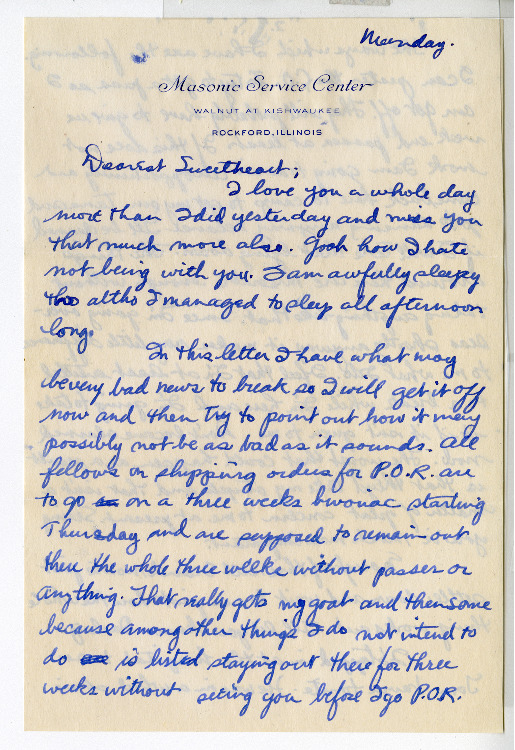 Monday.
Masonic Service Center
WALNUT AT KISHWAUKEE
ROCKFORD, ILLINOIS
Dearest Sweetheart;
I love you a whole day
more than I did yesterday and miss you
that much more also. Gosh how I hate
not being with you. I am awfully sleepy
tho altho I managed to sleep all afternoon
long.
In this letter I have what may
be very bad news to break so I will get it off
now and then try to point out how it may
possibly not be as bad as it sounds. All
fellows on shipping orders for P.O.R. are
to go on a three weeks bivoriac starting
Thursday and are supposed to remain out
there the whole three weeks without passes or
anything. That really gets my goat and then some
because among other things I do not intend to
do is listed staying out there for three
weeks without seeing you before I go P.O.R.